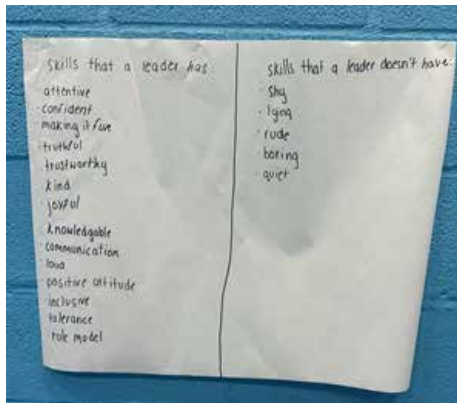 skills that a leader has:
attentive
· confident
· making it fun
· truthful
· trustworthy
· kind
· joyful
· knowledgable
· communication
· loud
· positive attitude
· inclusive
· tolerance
role model
skills that a leader doesn't have:
· shy
· lying
· rude
· boring
· quiet